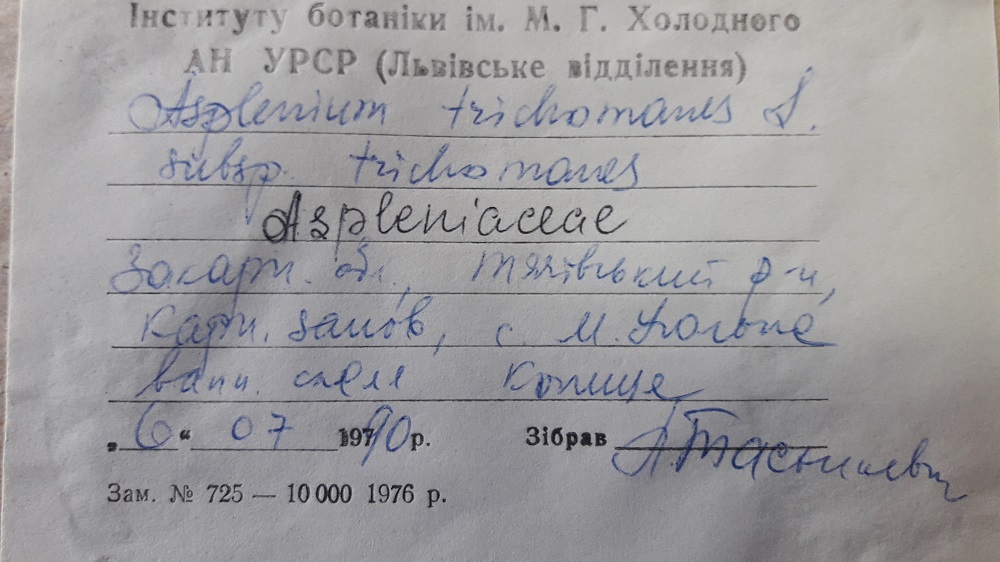 Інституту ботаніки ім. М. Г. Холодного
АН УРСР (Львівське відділення)
Asplenium trichomanes L.
subsp. trichomanes
Aspleniaceae
Закарп. обл., Тячівський р-н,
Карп. запов, с. М. Уголька
вапн. скеля
„6“ 07 1990 р. Зібрав Л. Тасєнкевич
Зам. № 725 — 10 000 1976 р.